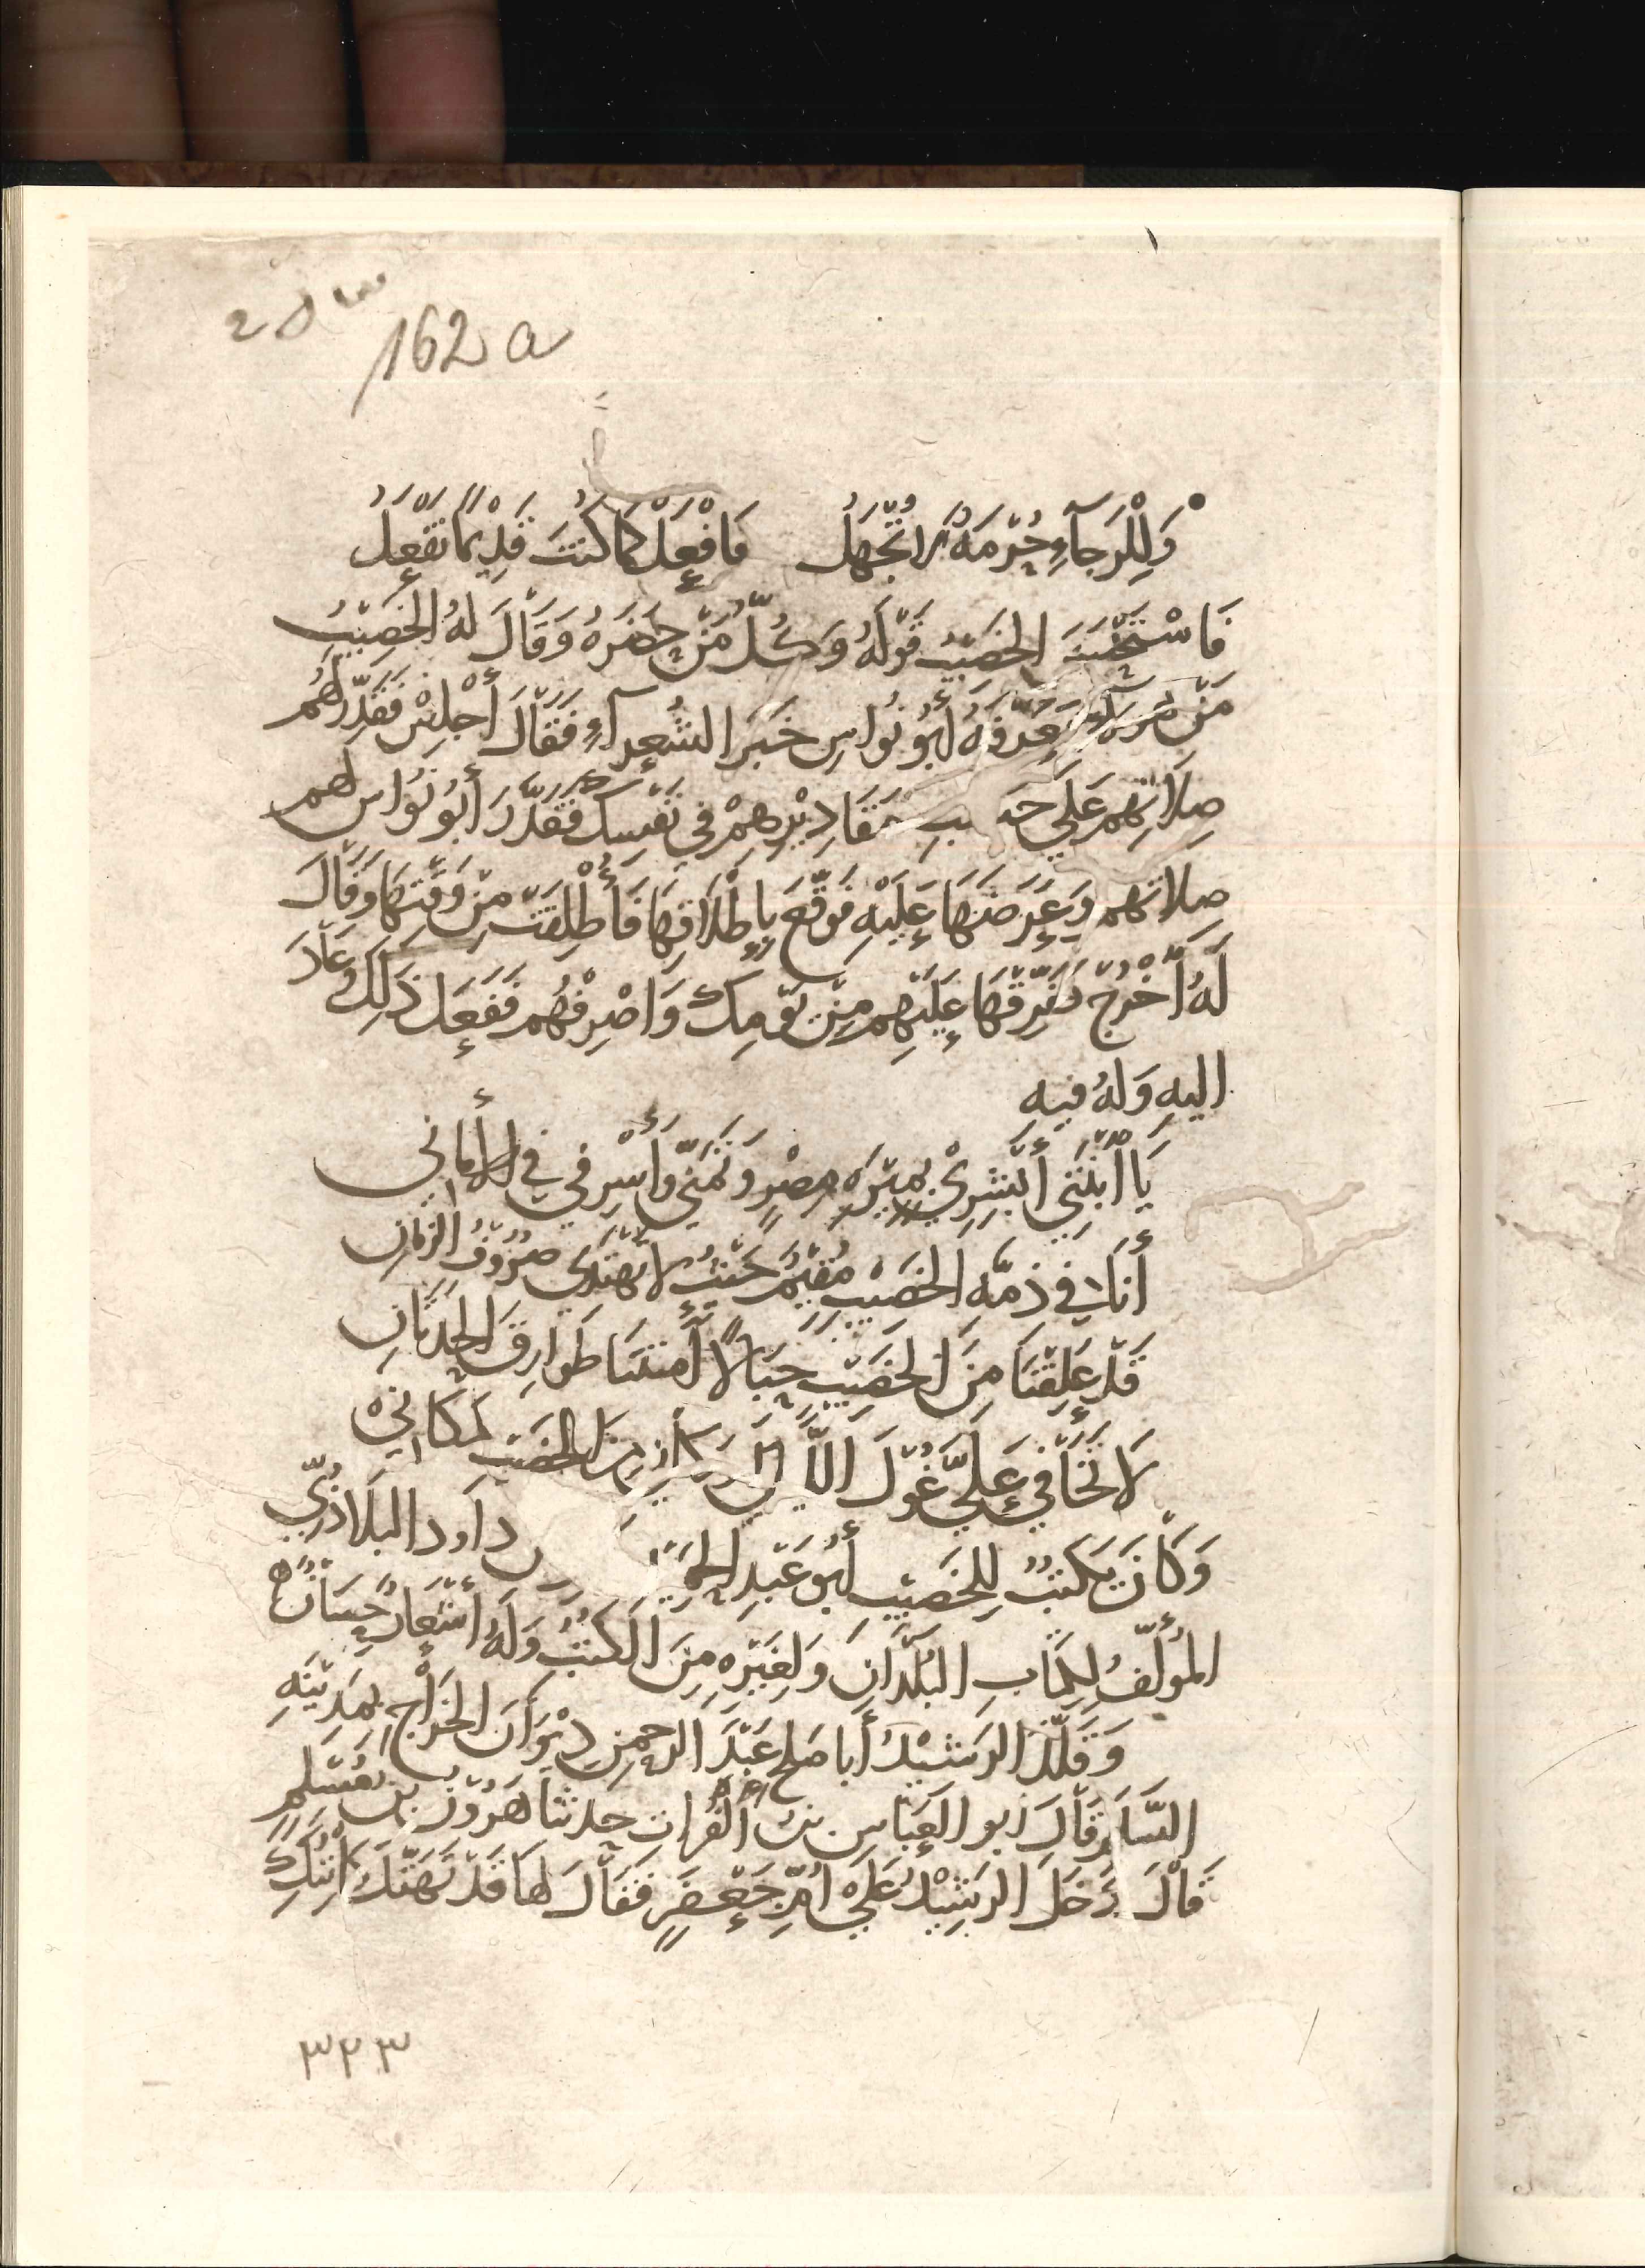 162 a
وَلِلْرَجآءِ حُرْمَةٌ لا تُجْهَلُ فَافْعَلْ كَمَا كُنْتَ قَدِيْمًا تَفْعَلُ
فَاسْتَحْسَنَ الخَصِيْبُ قَوْلَهُ وَكُلُّ مَنْ حَضَرَهُ وَقَالَ لَهُ الخَصِيْبُ
مَنْ فَعَرَّفَهُ أَبُو نُوَاسٍ خَبَرَ الشُعَرآءِ فَقَالَ أَجْلِسْ فَقَدِّرْ لَهُمْ
صِلَاتِهِم عَلَى حَسَبِ مَقَادِيْرِهِمْ فِي نَفْسِكَ فَقَدَّرَ أَبُو نُوَاسٍ لَهم
صِلاتهم وَعَرَضَهَا عَلَيْهِ فَوَقَّعَ بِإِطْلَاقِهَا فَأُطْلِقَتْ مِنْ وَقْتِهَا وَقَالَ
لَهُ أُخْرُجْ فَفَرِّقْهَا عَلَيْهِم مِنْ يَوْمِكَ وَاصْرِفْهُم فَفَعَلَ ذَلِكَ وَعَادَ
اليهِ وَلهُ فيهِ
يَا اُبْنَتِي أَبْشِرِيْ بِمِيْرَةِ مِصْرٍ وَتَمَنِّي وَأَسْرِفي فِي الأَمَاني
أَنَا فِي ذِمَّةِ الخَصِيْبِ مُقِيْمٌ حَيْثُ لا تَهْتَدِي صُرُوفُ الزَّمَانِ
قَدْ عَلِقْنَا مِنَ الخَصِيْبِ حِبَالًا أَمَنَتْنَا طَوَارِقَ الحَدَثَانِ
لَا تَخَافِي عَلَيَّ غَوْلَ اللَّيَالِي مِنَ الخَصِيْبِ مَكَانِي
وَكَانَ يَكْتُبُ لِلخَصِيْبِ أَبُو عَبْدِ الحَمِيْدِ دَاود البَلَاذُرِيّ
المُؤَلِّفُ لِكِتَابِ البُلْدَانِ وَلِغَيْرِهِ مِنَ الكُتُبِ وَلَهُ أَشْعَارٌ حِسَانٌ ه
وَقَلَّدَ الرَشِيْدُ أَبَا صَلح عَبْدَ الرحمن دِيْوَانَ الخَرَاجِ بِمَدِيْنَةِ
السَّلَمِ قَالَ أبو العَبَّاسِ بن الفُرَاتِ حدثنا هَرُوْنُ بن مُسْلِمٍ
قَالَ دَخَلَ الرَشِيْدُ عَلَى أُمِّ جَعْفَرٍ فَقَالَ لهَا قَدْ تَهَتَّكَ ابْنُكِ
٣٢٣